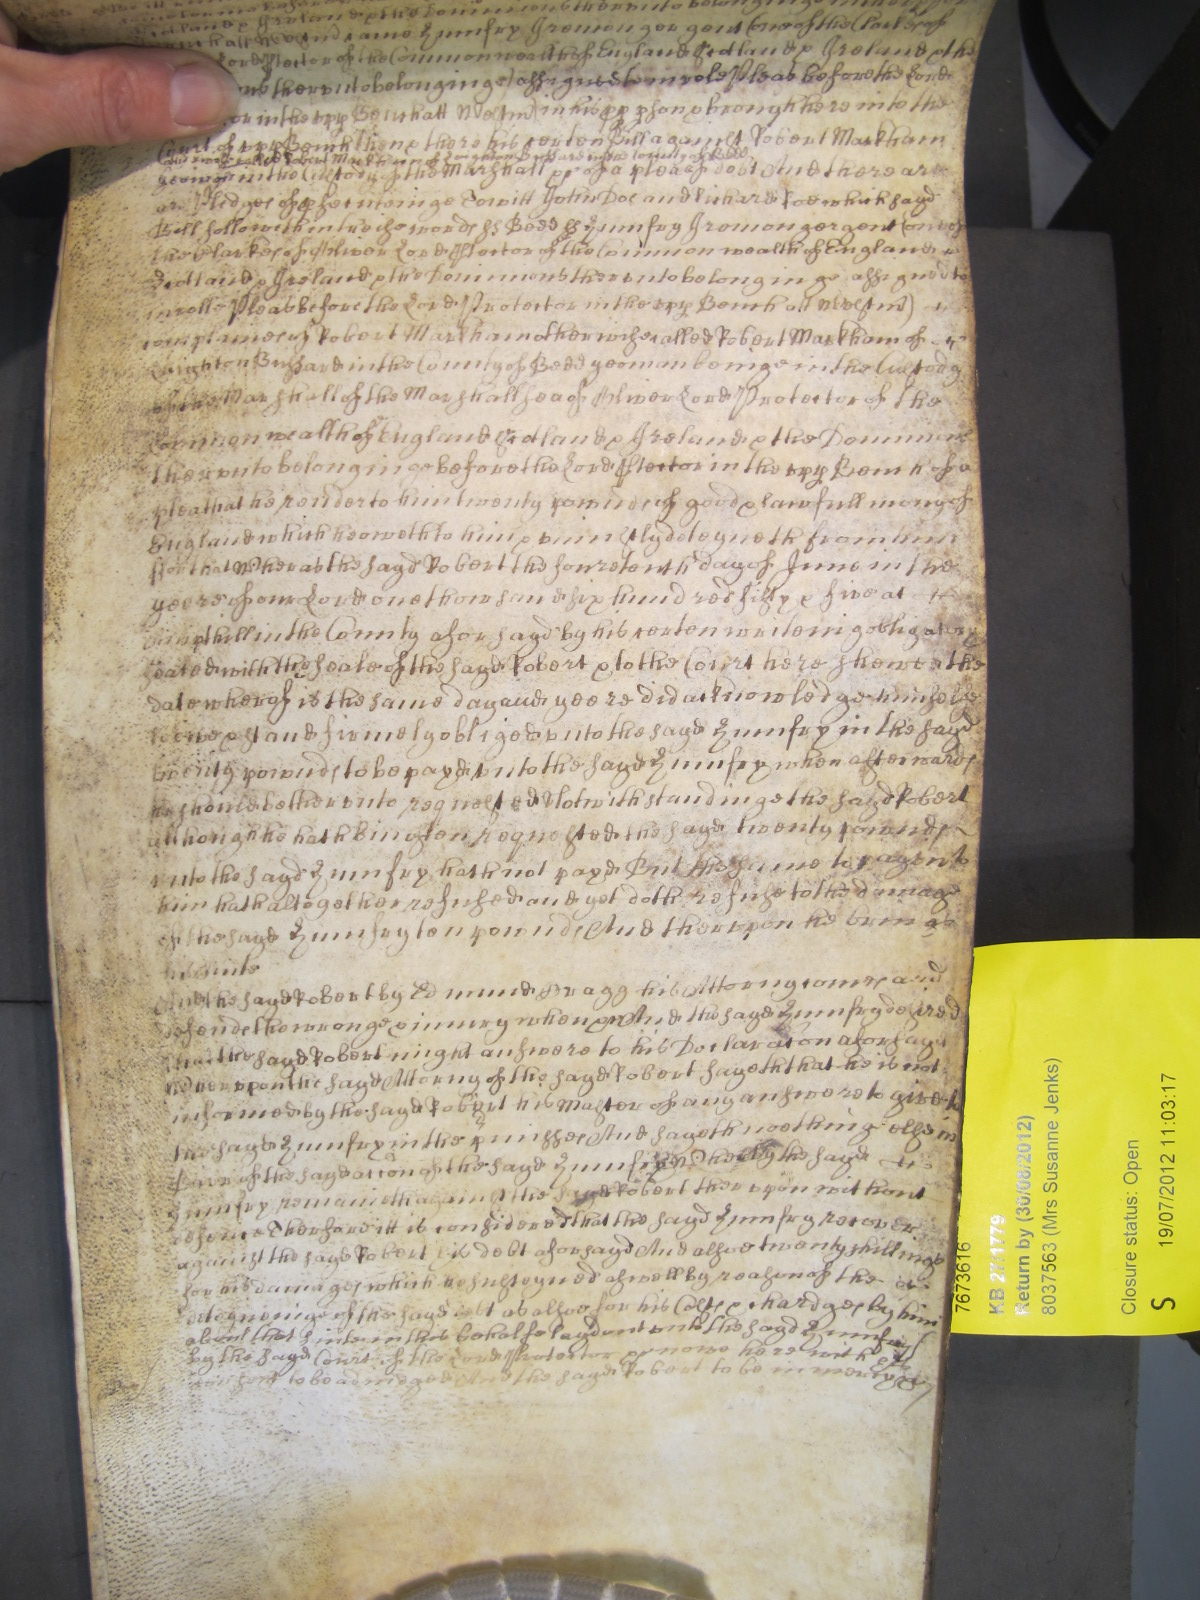 Scotland & Ireland & the Dominions therunto belonginge
same Humfry Iremonger gent one of the Clarkes of
Lord Protector of the Commonwealth of England Scotland & Ireland & the
therunto belonginge) assigned to inrole Pleas before the Lord
in the upp Bench att Westm) in his pp pson & brought here into the
Court of upp Bench then & there his certen Bill against Robert Markham
otherwise called Robert Markham of Leighton Bussard in the County of Bedd
yeoman in the Custody of the Marshall &c of a plea of debt And there are
Pledges of psecutinge Towitt John Doe and Richard Roe which sayd
Bill followeth in theise words ss Bedd ss Humfry Iremonger gent one of
the Clarkes of Oliver Lord Ptector of the Common wealth of England
Scotland & Ireland & the Dominions therunto belonginge assigned to
inrolle Pleas before the Lord Protector in the upp Bench att Westm)
complaines of Robert Markham otherwise called Robert Markham of
Leighton Bussard in the County of Bedd yeoman beinge in the Custody
of the Marshall of the Marshallsea of Oliver Lord Protector of the
Common wealth of England Scotland & Ireland & the Dominions
therunto belonginge before the Lord Ptector in the upp Bench of a
plea that he render to him twenty pounds of good & lawfull mony of
England which he oweth to him & uniustly deteyneth from him
for that Wheras the sayd Robert the fourteenth day of June in the
yeere of our Lord one thowsand six hundred fifty & five at
Ampthill in the County aforsayd by his certen writeing obligatory
sealed with the seale of the sayd Robert & to the Court here shewed the
date wherof is the same day and yeere did acknowledge himselfe
to owe & stand firmely obliged unto the sayd Humfry in the sayd
twenty pounds to be payd unto the sayd Humfry when afterwards
he should be therunto requested Notwithstandinge the sayd Robert
although he hath bin often requested the sayd twenty pounds
unto the sayd Humfry hath not payd But the same to pay unto
him hath altogether refused and yet doth refuse to the damage
of the sayd Humfry ten pounds And therupon he bringe
his suite
And the sayd Robert by Edmund Bragg his Attorny comes and
defendeth wronge & iniury when &c And the sayd Humfry desired
that the sayd Robert might answere to his Declaration aforsayd
Wherupon the sayd Attorny of the sayd Robert sayeth that he is not
informed by the sayd Robert his Master of any answere to give to
the sayd Humfry in the pmisses And sayeth noething else in
barr of the sayd action of the sayd Humfry Wherby the sayd
Humfry remaineth against the sayd Robert therupon without
defence Therfore itt is considered that the sayd Humfry recover
against the sayd Robert his debt aforsayd And alsoe twenty shillings
for his damages which he susteyned aswell by reason of the
deteigneinge of the sayd debt as alsoe for his Costs & chardges by him
about that suite in this behalfe layd out unto the sayd Humfry
by the sayd Court of the Lord Protector &c nowe here with his
consent to be adiudged And the sayd Robert to be in mercy &c
7673616
KB 27/1779
Return by (30/08/2012)
8037563 (Mrs Susanne Jenks)
Closure status: Open
S 19/07/2012 11:03:17